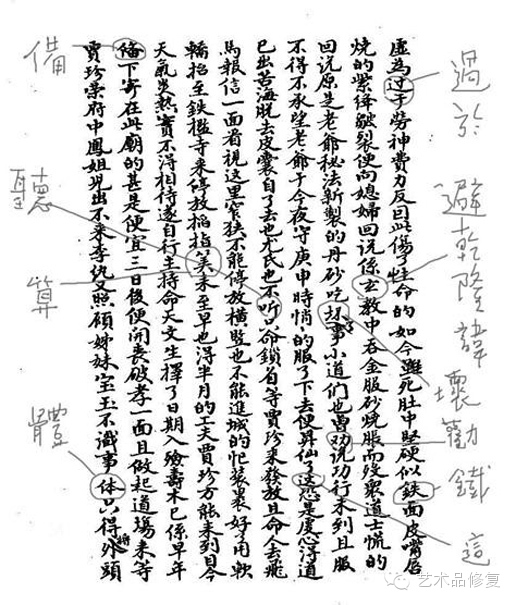 虚為过于劳神费力反因此傷了性命的如今雖死肚中堅硬似鉄面皮嘴唇
燒的紫绛皺裂便向媳婦回说係玄教中吞金服砂燒脹而歿衆道士慌的
回说原是老爺秘法新製的丹砂吃坏事小道們也曾劝说功行未到且服
不得不承望老爺于今夜守庚申時悄〻的服了下去便昇仙了这恐是虔心得道
已出苦海脱去皮囊自了去也尤氏也不听只命鎖着等賈珍来發放且命人去飛
馬報信一面看視这里窄狭不能停放横豎也不能進城的忙装裹好了用軟
轎抬至鉄檻寺来停放掐指筭来至早也得半月的工夫賈珍方能来到目今
天氣炎熱實不得相待遂自行主持命天文生擇了日期入殮壽木已係早年
俻下寄在此廟的甚是便宜三日後便開喪破孝一面且做起道塲来等
賈珍榮府中鳳姐兒出不来李紈又照顧姊妹宝玉不識事体只得將外頭
過於
避乾隆諱
壞
勸
鐵
這
備
聽
算
體
艺术品修复